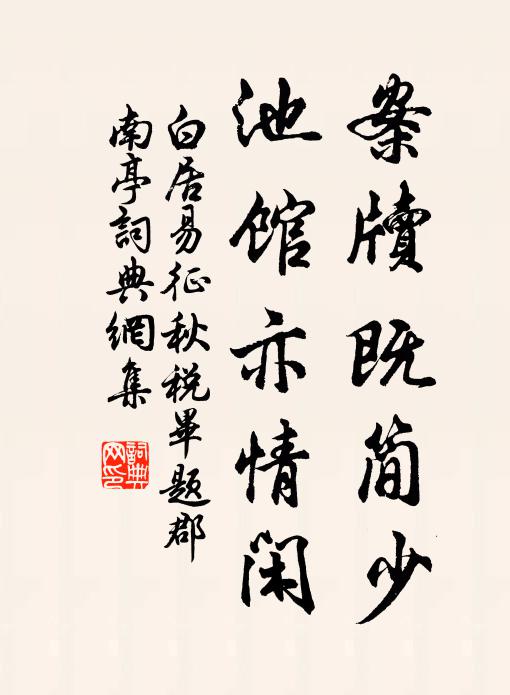 案牘既简少
池館亦情闲
白居易征秋税畢题郡
南亭詞典網集
詞典
网印